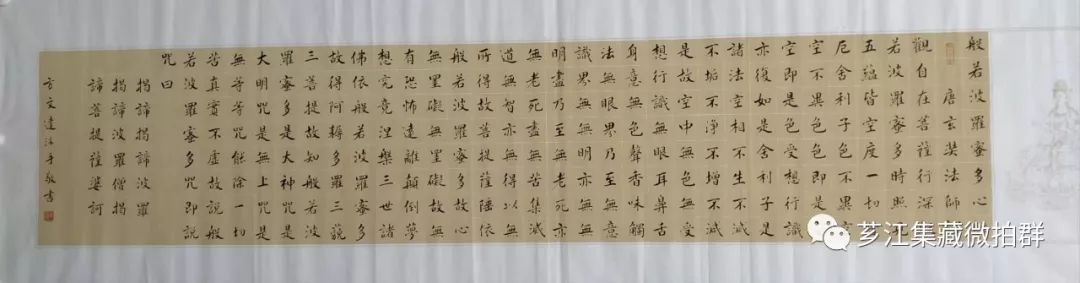 般若波羅蜜多心
經唐玄奘法師
觀自在菩薩行深
若波羅蜜多時照見
五蘊皆空度一切
厄舍利子色不異
空不異色色即是
空即是色受想行識
亦復如是舍利子是
諸法空相不生不滅
不垢不淨不增不減
是故空中無色無受
想行識無眼耳鼻舌
身意無色聲香味觸
法無眼界乃至無意
識界無無明亦無無
明盡乃至無老死亦
無老死盡無苦集滅
道無智亦無得以無
所得故菩提薩埵依
般若波羅蜜多故心
無罣礙無罣礙故無
有恐怖遠離顛倒夢
想究竟涅槃三世諸
佛依般若波羅蜜多
故得阿耨多羅三藐
三菩提故知般若波
羅蜜多是大神咒是
大明咒是無上咒是
無等等咒能除一切
苦真實不虛故說般
若波羅蜜多咒即說
咒曰
揭諦揭諦波羅
揭諦波羅僧揭
諦菩提薩婆訶
方文達沐手敬書
芗江集藏微拍群